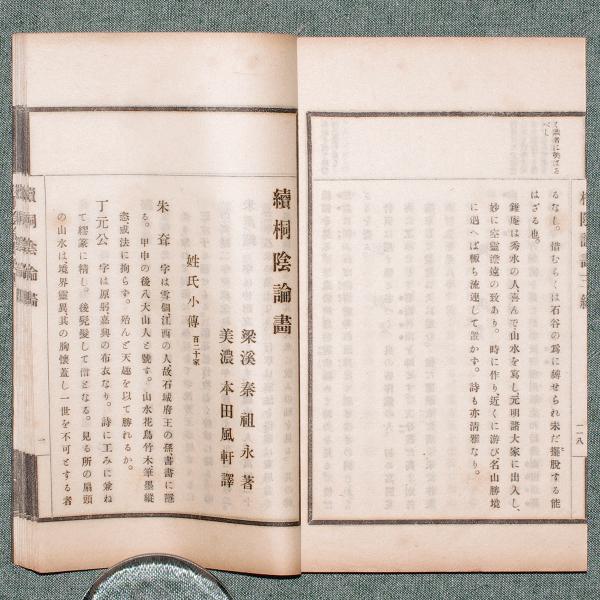 て識者に咲はる
べし
るなし。惜むらくは石谷の爲に縛せられ未だ擺脫する能
はざる也。
鍾庵は秀水の人、喜んで山水を寫し元明諸大家に出入し、
妙に空靈澹遠の致あり。時に作り近くに游び名山勝境
に遇へば輒ち流連して置かず。詩も亦淸雅なり。
一一八
續桐陰論畫
梁溪 秦祖永著
美濃 本田風軒譯
姓氏小傳 百二十家
朱耷 字は雪個、江西の人故石城府王の孫書畫に隱
る。甲申の後八大山人と號す。山水花鳥竹木筆墨縱
恣或法に拘らず。殆んど天趣を以て勝れるか。
丁元公 字は原躬嘉興の布衣なり。詩に工みに兼ね
て繆篆に精し。後髡髮して僧となる。見る所の扇頭
の山水は境界靈異其の胸懷蓋し一世を不可とする者
一
續桐陰論畫